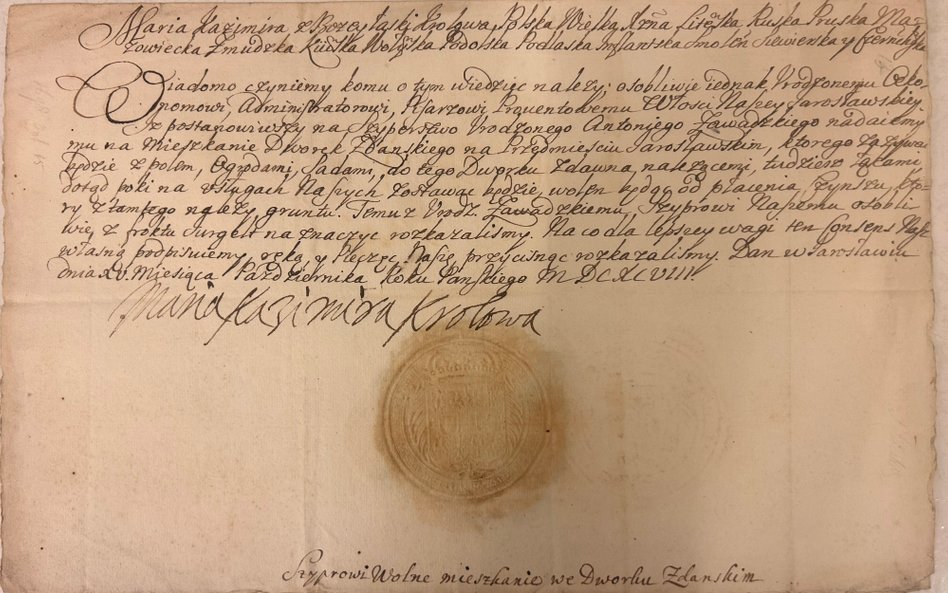 Maria Kazimira z Bozey łaski Krolowa Polska Wielka Xzna Litewska Ruska Pruska Ma-
zowiecka Zmudzka Kiiowska Wolynska Podolska Podlaska Inflantska Smolen Siewierska y Czernihowska
Wiadomo czyniemy komu o tym wiedziec nalezy; osobliwie iednak Vrodzonemu Oeko-
nomowi, Administratorowi, Pisarzowi Prowentowemu Włosci Naszey Jarosławskiey.
Iz postanowiwszy na Szyperstwo Vrodzonego Antoniego Zawadzkiego nadaiemy
mu na Mieszkanie Dworek Zdanski na Przedmiesciu Jarosławskim, ktorego zazywac
będzie z polem, Ogrodami, Sadami, do tego Dworku zdawna, nalezącemi, tudziesz Łąkami
dotąd poki na vsługach Naszych zostawac będzie, wolen będąc od płacenia, Czynszu, kto-
ry z tamtego nalezy gruntu. Temu z Vrodz. Zawadzkiemu, Szyprowi Naszemu osobli
wie, z Jurgelt naznaczyc rozkazalismy. Na co dla lepszey wagi ten Consens Nasz
własną podpisuiemy ręką, y Pieczęc Naszę przycisnąc rozkazalismy. Dan w Jarosławiu
dnia XV. Miesiąca Pazdziernika Roku Panskiego MDCXCVIII.
Maria Kazimira Krolowa
Szyprowi Wolne mieszkanie we Dworku Zdanskim